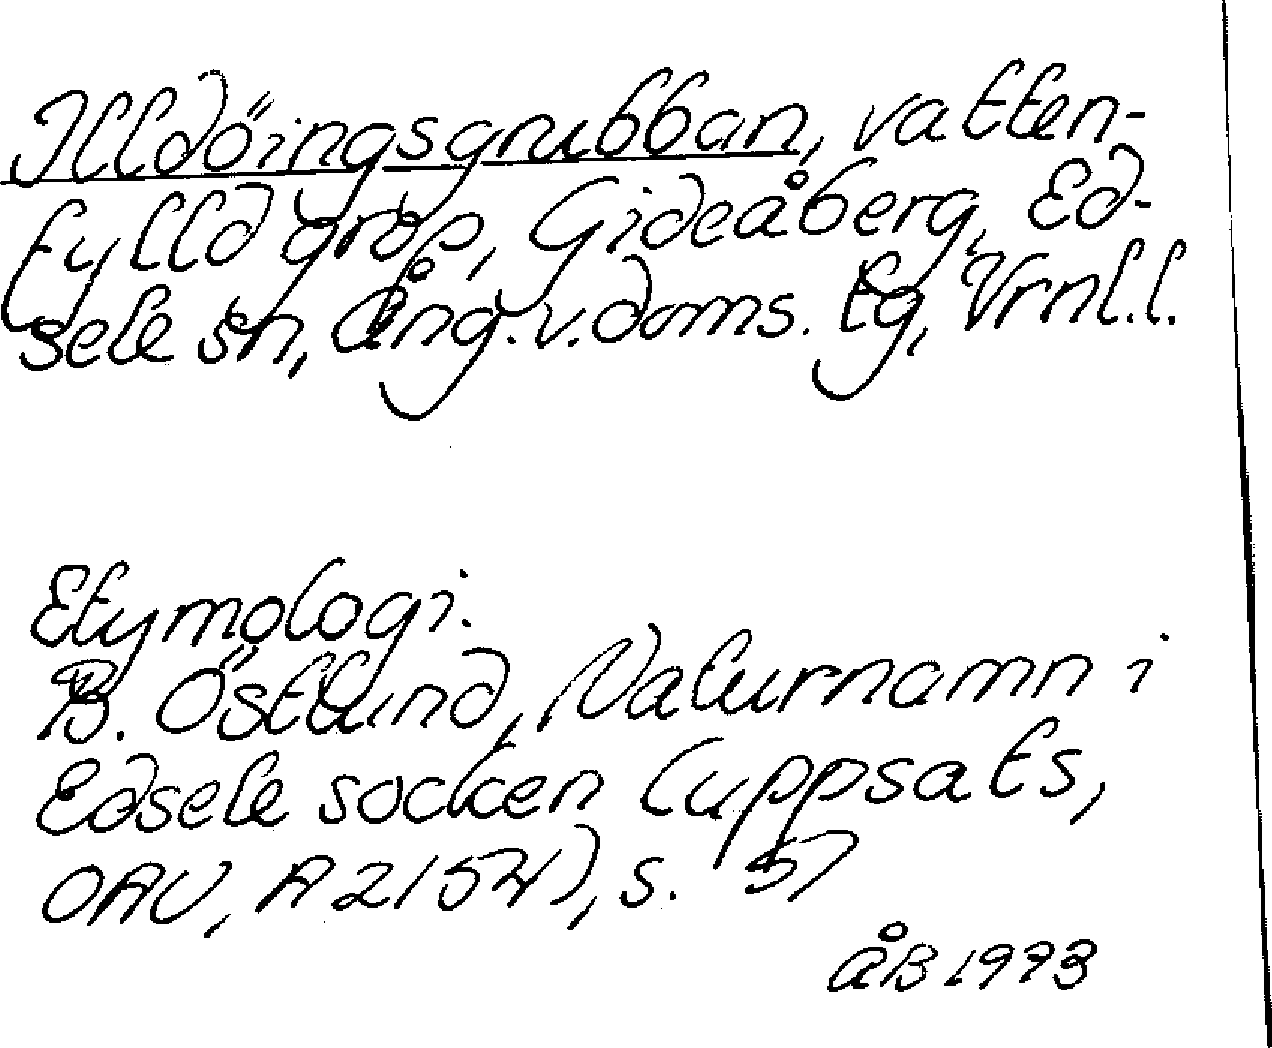 Illdöingsgrubban, vatten-
fylld grop, Gideåberg, Ed-
sele sn, Ång. v. doms. tg, Vrnl.l.
Etymologi.
B. Östlund, Naturnamn i
Edsele socken (uppsats,
OAU, A 2154), s. 57
ÅB 1993